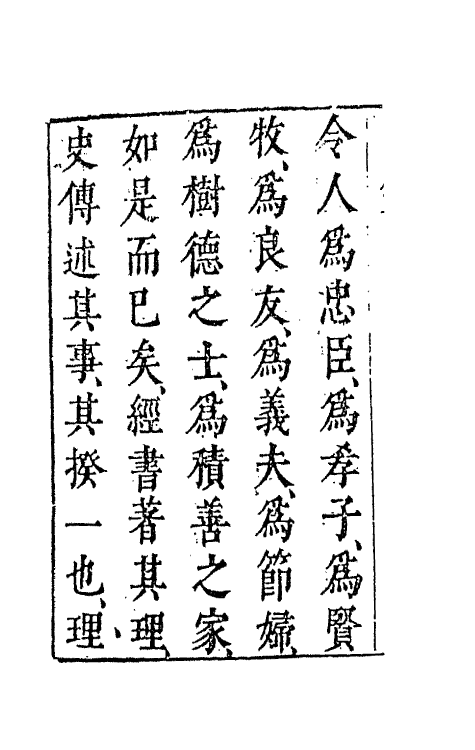 令人爲忠臣、爲孝子、爲賢
牧、爲良友、爲義夫、爲節婦、
爲樹德之士、爲積善之家、
如是而已矣、經書著其理、
史傳述其事、其揆一也、理、